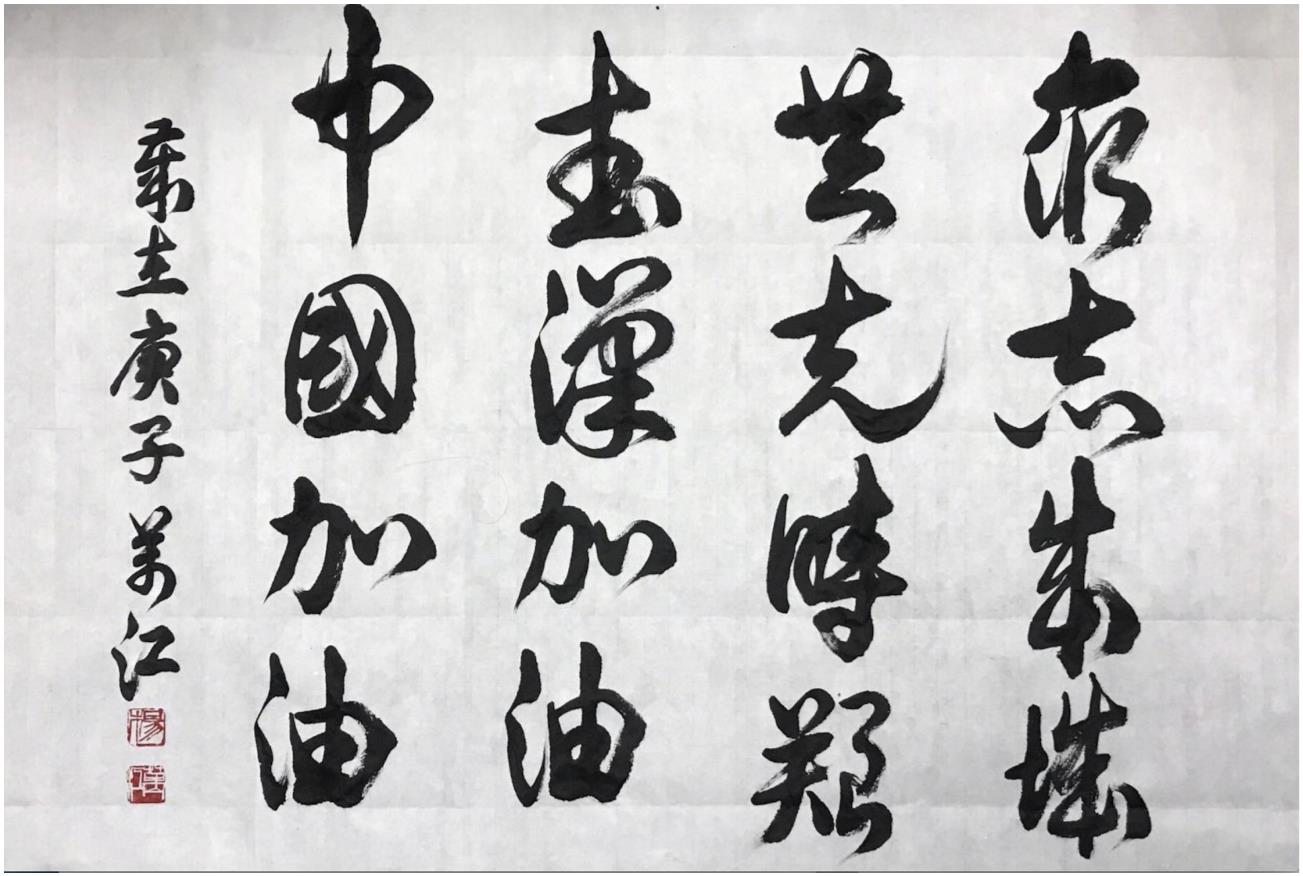 衆志成城
共克時艱
武漢加油
中國加油
歲在庚子萬江
楊